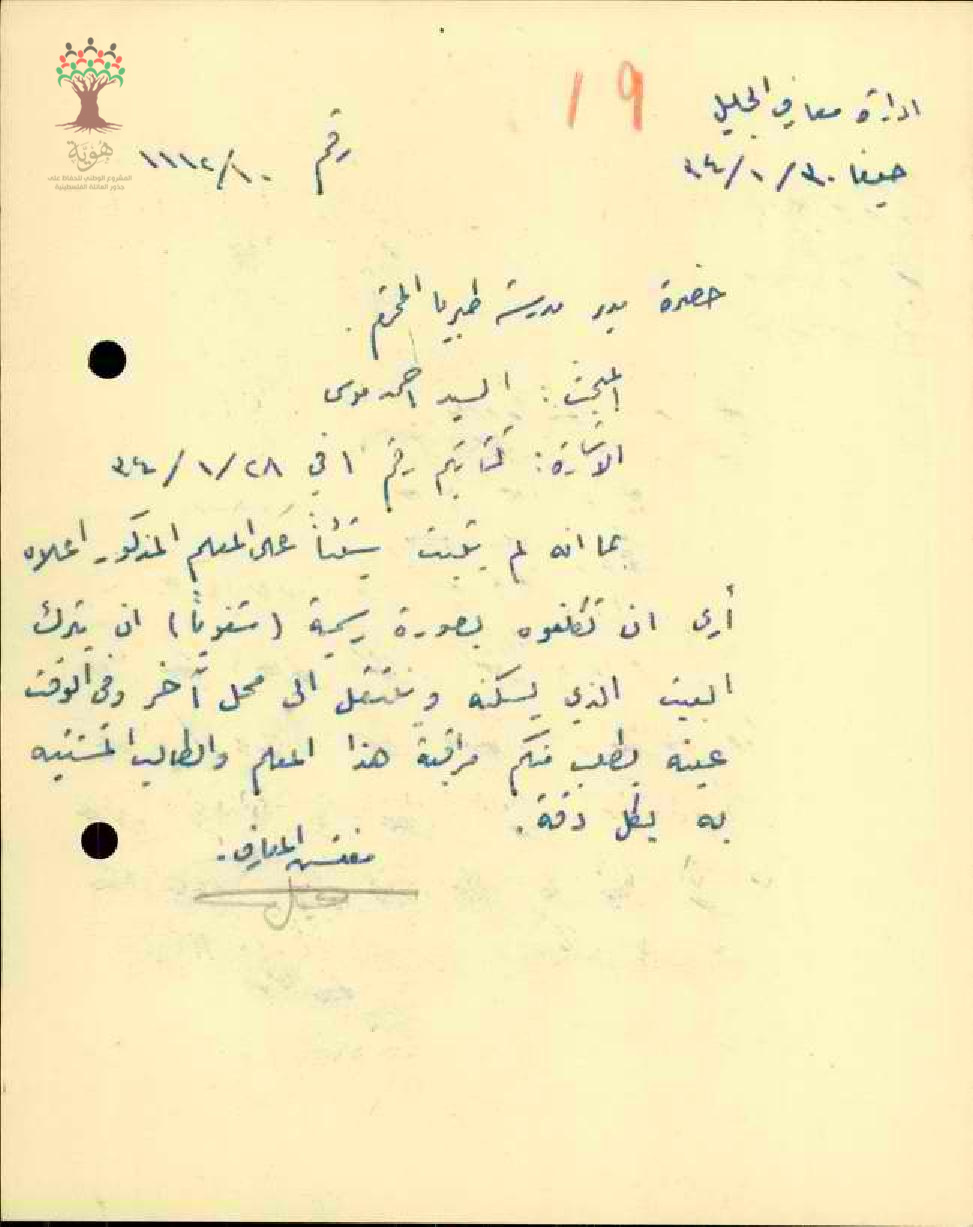 19
ادارة معارف الجليل
حيفا ٣٠/١/٣٤
رقم ١١١٢/١٠
هوية
المشروع الوطني للحفاظ على
جذور العائلة الفلسطينية
حضرة مدير مدرسة طبريا المحترم.
المبحث: السيد احمد موسى
الاشارة: كتابكم رقم ١ في ٢٨/١/٣٤
بما انه لم يثبت شيئاً على المعلم المذكور اعلاه
أرى ان تكلفوه بصورة رسمية (شفوياً) ان يترك
البيت الذي يسكنه وينتقل الى محل آخر وفي الوقت
عينه يطلب منكم مراقبة هذا المعلم والطالب المشتبه
به بكل دقة.
مفتش المعارف.